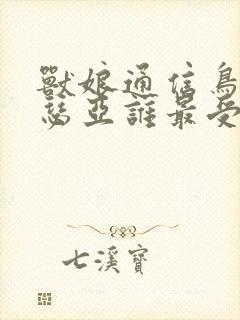 獸娘通信鳥
瑟亞誰最受
七溪寶